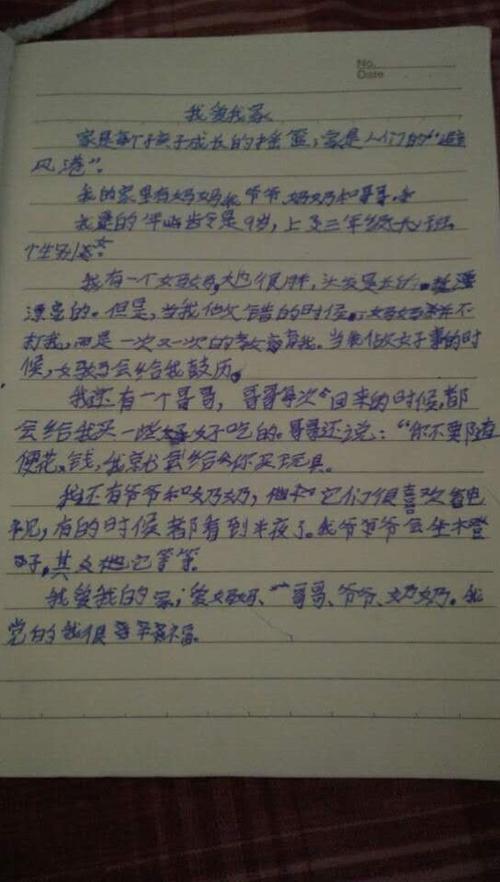 No.
Date
我爱我家
家是每个孩子成长的摇篮,家是人们的“避
风港”.
我的家里有妈妈、爷爷、奶奶和哥哥。我
我的年龄是9岁,上了三年级大班
个性别
我有一个妈妈,她很胖,头发是长的。
漂亮的.但是,当我做错的时候,妈妈并不
打我,而是一次又一次的教育我.当我做好事的时
候,妈妈会给我鼓历。
我还有一个哥哥,哥哥每次回来的时候,都
会给我买一些好吃的.哥哥还说:“你不要随
便花钱,我就会给你买玩具.
我还有爷爷和奶奶,它们很喜欢看电
视,有的时候都看到半夜了.我爷爷会坐木凳
子,其它等等.
我爱我的家;爱妈妈、哥哥、爷爷、奶奶.我
觉的我很幸福.